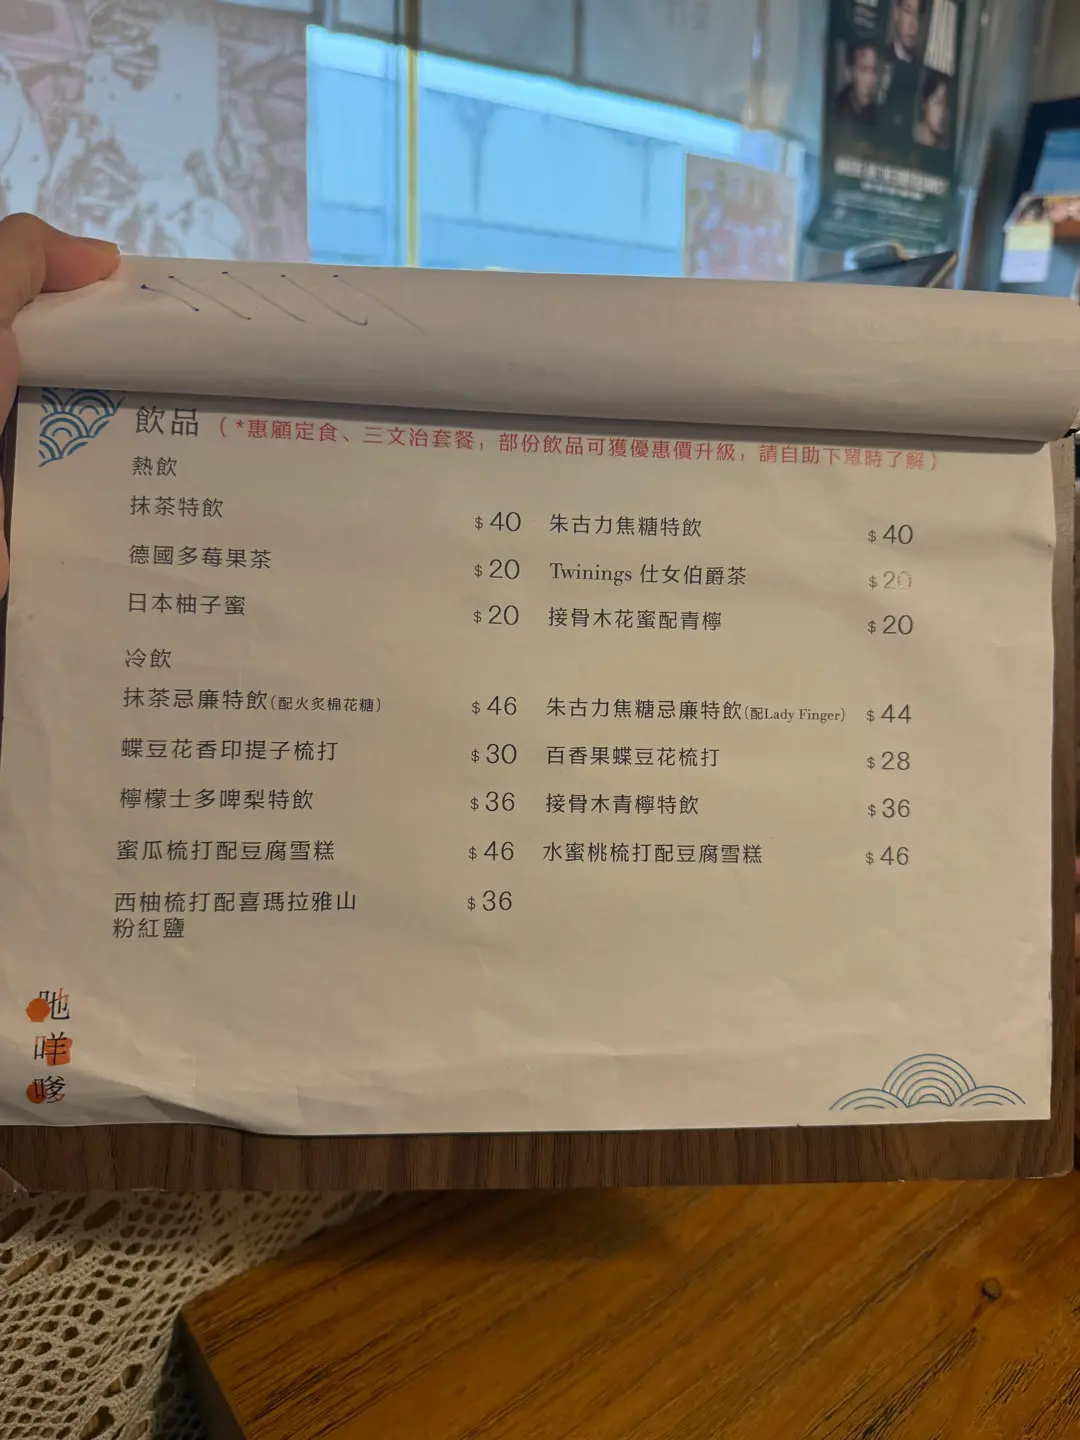 飲品 (*惠顧定食、三文治套餐，部份飲品可獲優惠價升級，請自助下單時了解)
熱飲
抹茶特飲 $40 朱古力焦糖特飲 $40
德國多莓果茶 $20 Twinings 仕女伯爵茶 $20
日本柚子蜜 $20 接骨木花蜜配青檸 $20
冷飲
抹茶忌廉特飲(配火炙棉花糖) $46 朱古力焦糖忌廉特飲(配Lady Finger) $44
蝶豆花香印提子梳打 $30 百香果蝶豆花梳打 $28
檸檬士多啤梨特飲 $36 接骨木青檸特飲 $36
蜜瓜梳打配豆腐雪糕 $46 水蜜桃梳打配豆腐雪糕 $46
西柚梳打配喜瑪拉雅山 $36
粉紅鹽
吔
咩
嗲